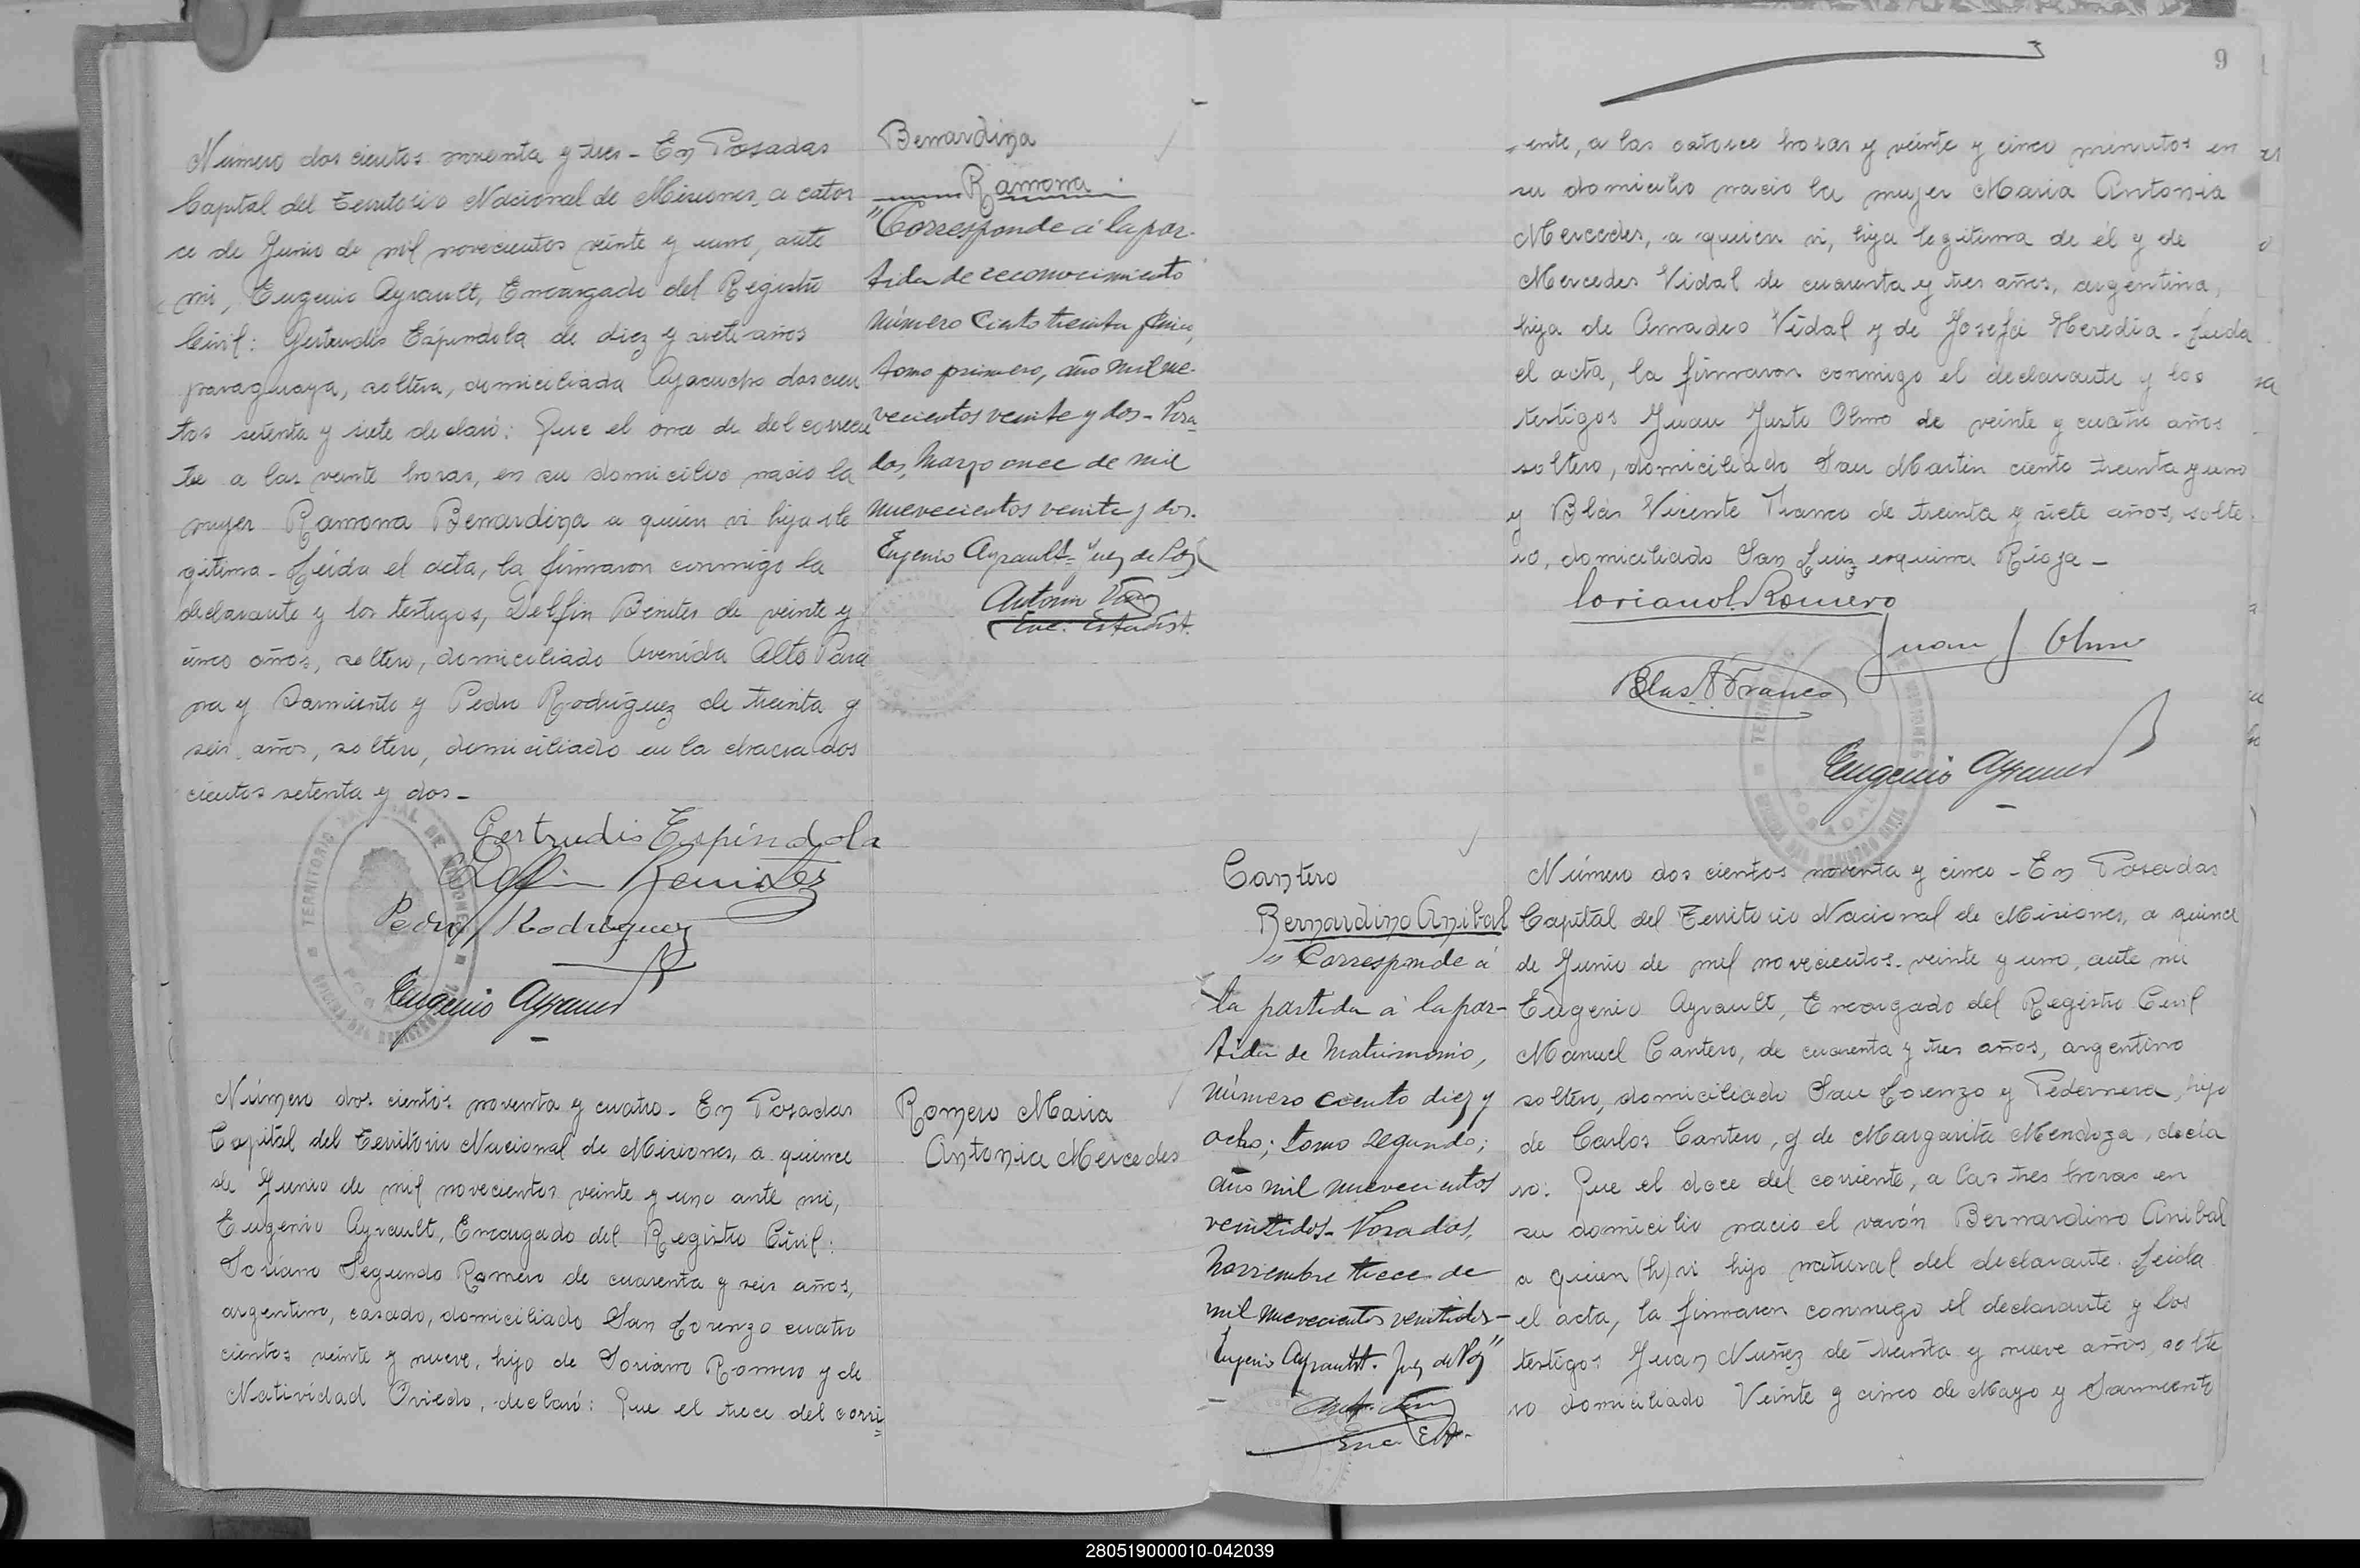 Número dos cientos noventa y tres - En Posadas
Capital del Territorio Nacional de Misiones, a cator
ce de Junio de mil novecientos veinte y uno, ante
mi, Eugenio Ayrault, Encargado del Registro
Civil: Gertrudis Espindola de diez y siete años
paraguaya, soltera, domiciliada Ayacucho doscien
tos setenta y siete declaró: Que el once de del corrien
te a las veinte horas, en su domicilio nacio la
mujer Ramona Bernardina a quien vi hija ile
gitima - Leida el acta, la firmaron conmigo la
declarante y los testigos, Delfin Benites de veinte y
cinco años, soltero, domiciliado Avenida Alto Para
na y Sarmiento y Pedro Rodríguez de treinta y
seis años, soltero, domiciliado en la chacra dos
cientos setenta y dos -
Gertrudis Espíndola
Delfin Benitez
Pedro Rodriguez
Eugenio Ayrault
TERRITORIO NACIONAL DE MISIONES
Bernardina
Ramona
"Corresponde á la par-
tida de reconocimiento
número Ciento treinta y cinco,
tomo primero, año mil no-
vecientos veinte y dos - Posa-
das, Marzo once de mil
nuevecientos veinte y dos.
Eugenio Ayrault = Juez de Paz
Enc. Estadist.
Número dos cientos noventa y cuatro - En Posadas
Capital del Territorio Nacional de Misiones, a quince
de Junio de mil novecientos veinte y uno ante mi,
Eugenio Ayrault, Encargado del Registro Civil:
Soriano Segundo Romero de cuarenta y seis años,
argentino, casado, domiciliado San Lorenzo cuatro
cientos veinte y nueve, hijo de Soriano Romero y de
Natividad Oviedo, declaró: Que el trece del corri=
Romero Maria
Antonia Mercedes
9
-ente, a las catorce horas y veinte y cinco minutos en
su domicilio nacio la mujer Maria Antonia
Mercedes, a quien vi, hija legitima de él y de
Mercedes Vidal de cuarenta y tres años, argentina,
hija de Amadeo Vidal y de Josefa Heredia - Leida
el acta, la firmaron conmigo el declarante y los
testigos Juan Justo Olmo de veinte y cuatro años
soltero, domiciliado San Martin ciento treinta y uno
y Blás Vicente Franco de treinta y siete años, solte
ro, domiciliado San Luiz esquina Rioja -
Soriano S. Romero
Juan J Olmo
Blas V Franco
Eugenio Ayrault
Cantero
Bernardino Anibal
"Corresponde á
la partida á la par-
tida de Matrimonio,
número ciento diez y
ocho; tomo segundo;
año mil nuevecientos
veintidos - Posadas,
Noviembre trece de
mil nuevecientos veintidos -
Eugenio Ayrault. Juez de Paz"
Enc. Est.
Número dos cientos noventa y cinco - En Posadas
Capital del Territorio Nacional de Misiones, a quince
de Junio de mil novecientos veinte y uno, ante mi
Eugenio Ayrault, Encargado del Registro Civil
Manuel Cantero, de cuarenta y tres años, argentino
soltero, domiciliado San Lorenzo y Pedernera, hijo
de Carlos Cantero, y de Margarita Mendoza, decla
ro: Que el doce del corriente, a las tres horas en
su domicilio nacio el varón Bernardino Anibal
a quien (h) vi hijo natural del declarante. Leida
el acta, la firmaron conmigo el declarante y los
testigos Juan Nuñez de treinta y nueve años, solte
ro domiciliado Veinte y cinco de Mayo y Sarmiento
280519000010-042039